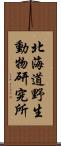 北海道野生
動物研究所